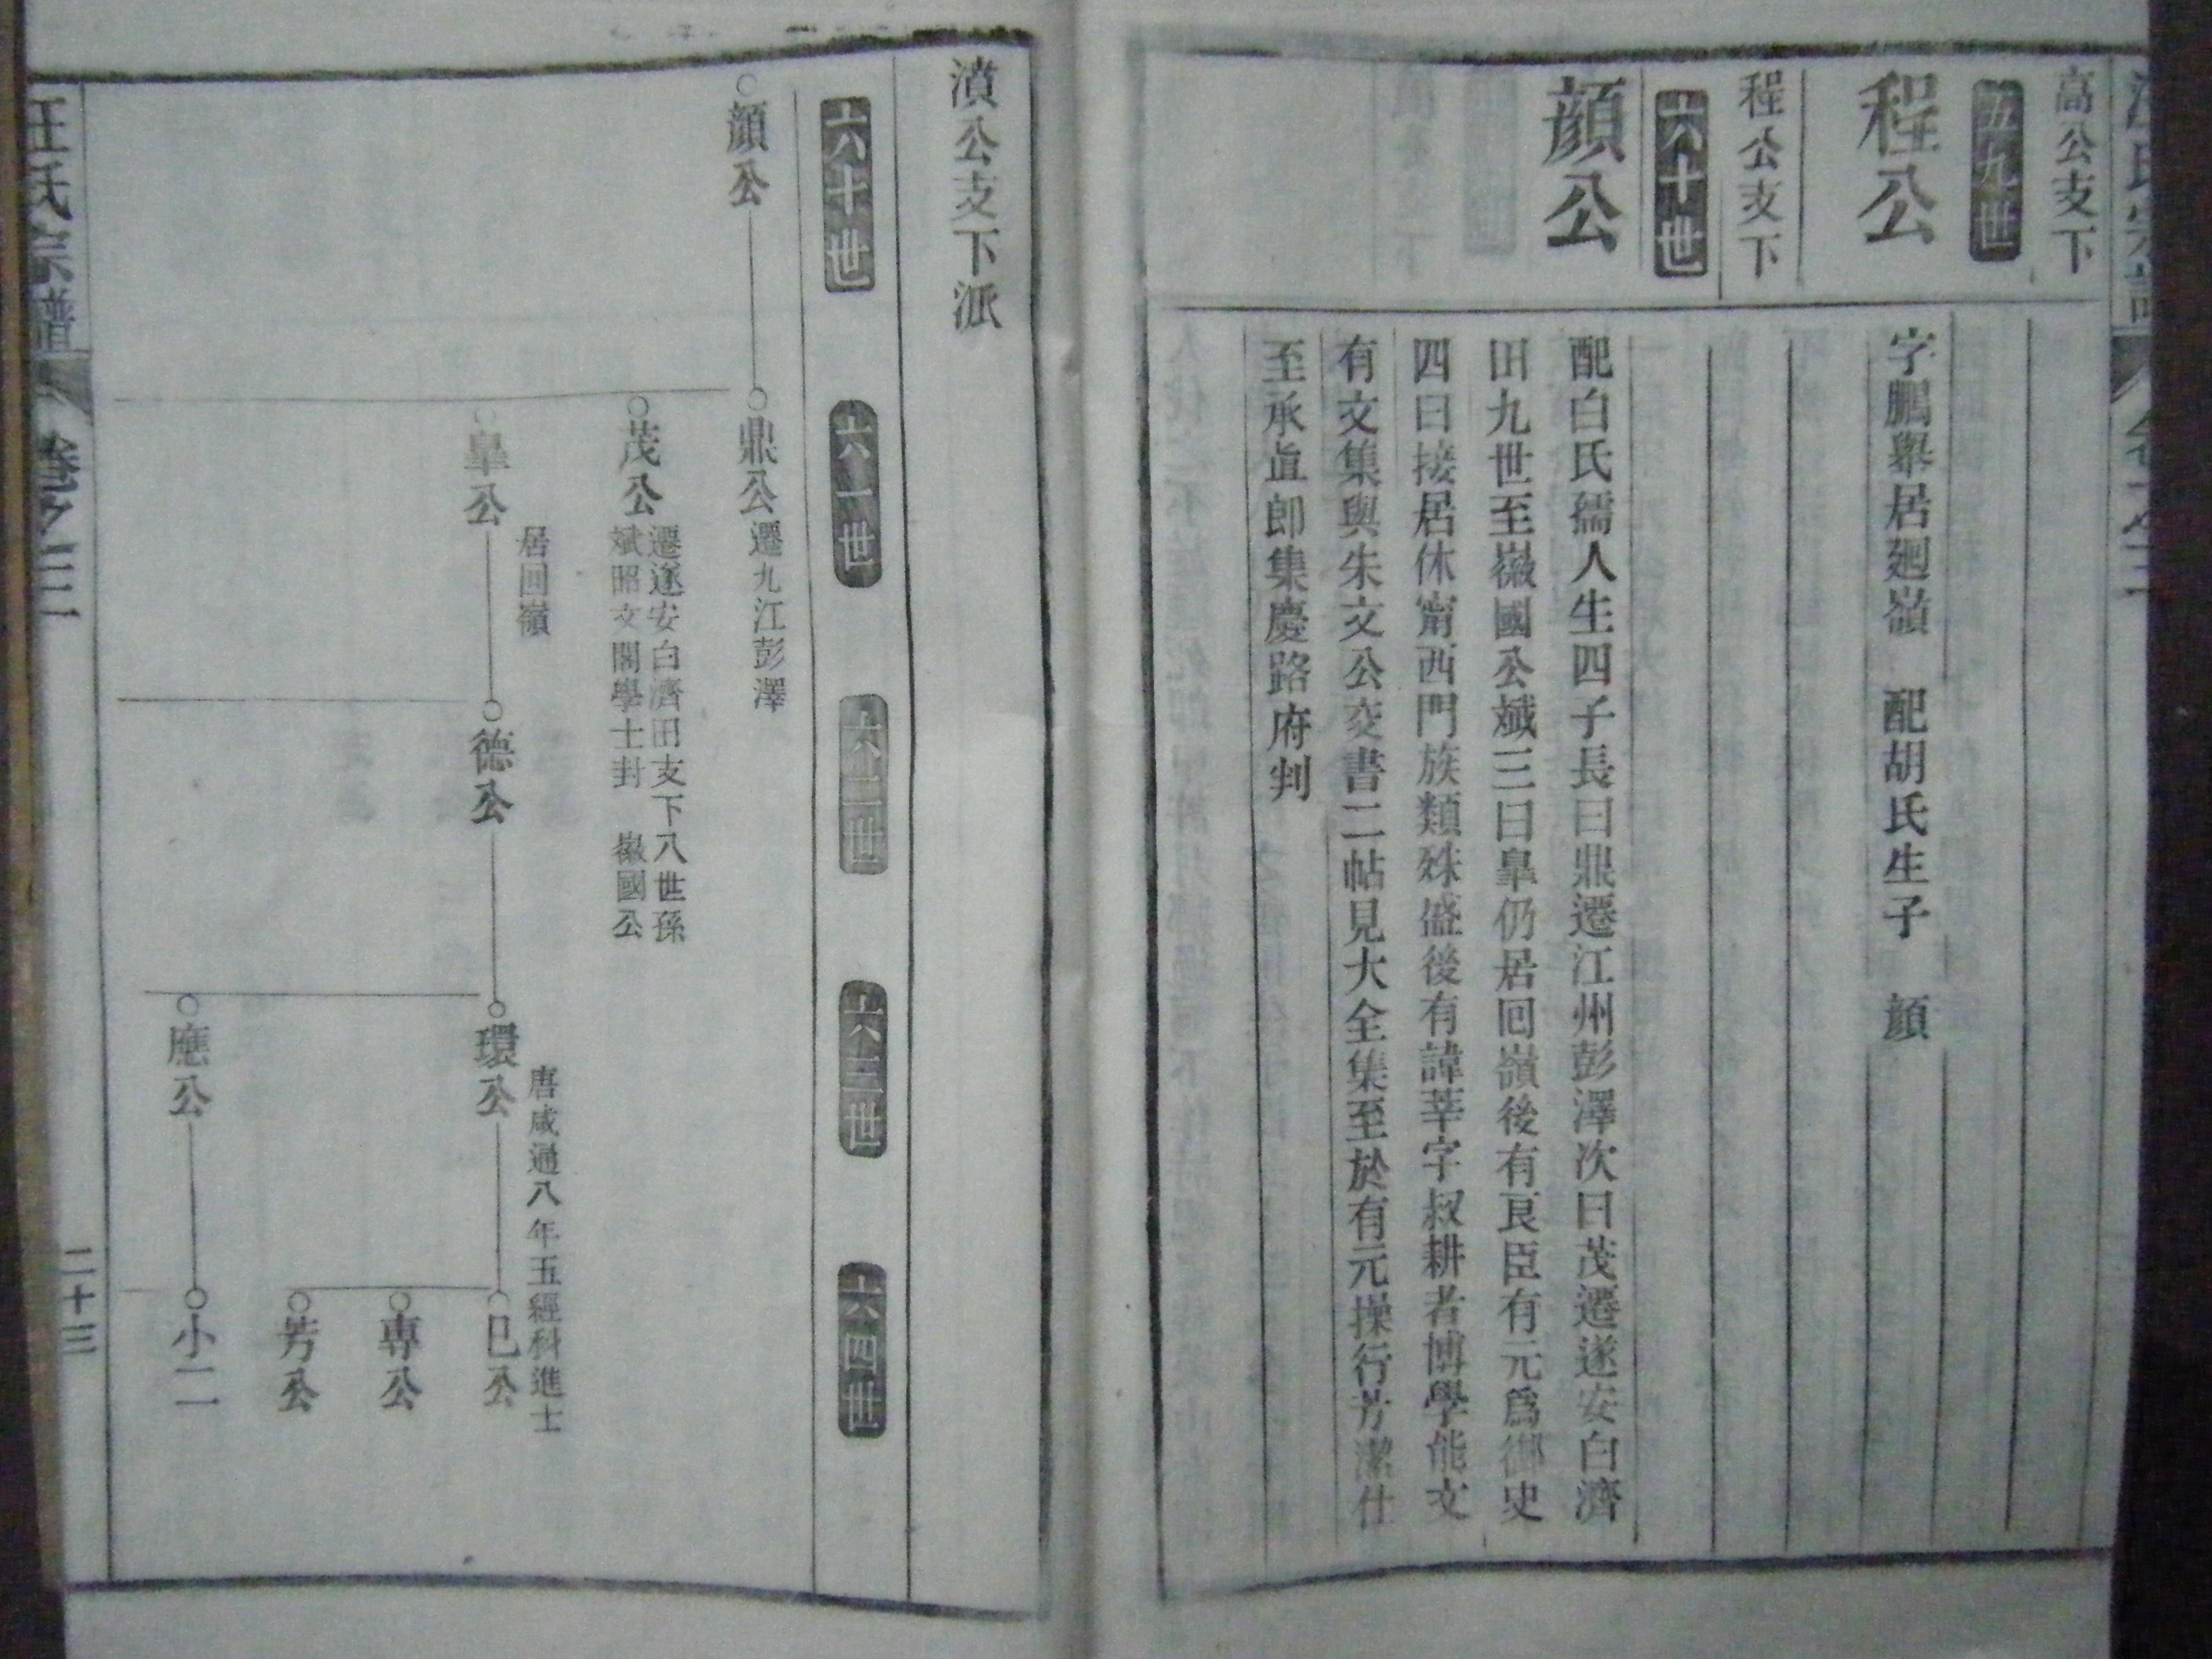 高公支下
五九世
程公
字鵬舉居廻嶺 配胡氏生子 顔
程公支下
六十世
顔公
配白氏孺人生四子長曰鼎遷江州彭澤次曰茂遷遂安白濟
田九世至徽國公斌三曰皐仍居回嶺後有良臣有元爲御史
四曰接居休甯西門族類殊盛後有諱莘字叔耕者博學能文
有文集與朱文公交書二帖見大全集至於有元操行芳潔仕
至承直郎集慶路府判
濆公支下派
六十世
六一世
六二世
六三世
六四世
顔公
鼎公
遷九江彭澤
茂公
遷遂安白濟田支下八世孫
斌昭文閣學士封 徽國公
皐公
居回嶺
德公
環公
唐咸通八年五經科進士
應公
巳公
專公
芳公
小二
汪氏宗譜
卷之三
二十三